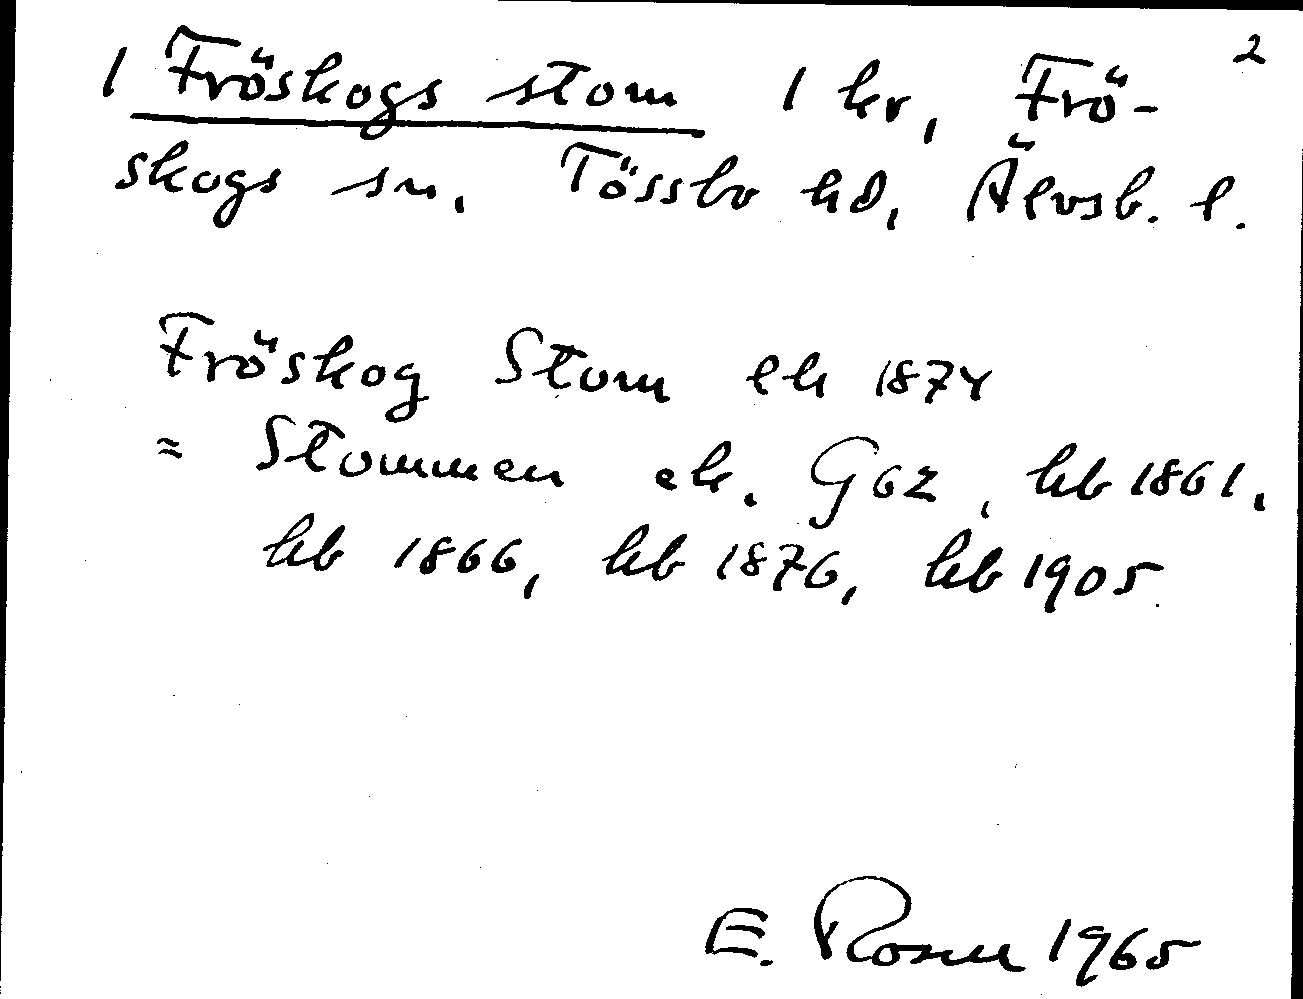 2
1 Fröskogs stom 1 kr, Frö-
skogs sn, Tössbo hd, Älvsb. l.
Fröskog Stom ek 1874
= Stommen ek. G62, hb 1861,
hb 1866, hb 1876, hb 1905
E. Rosell 1965